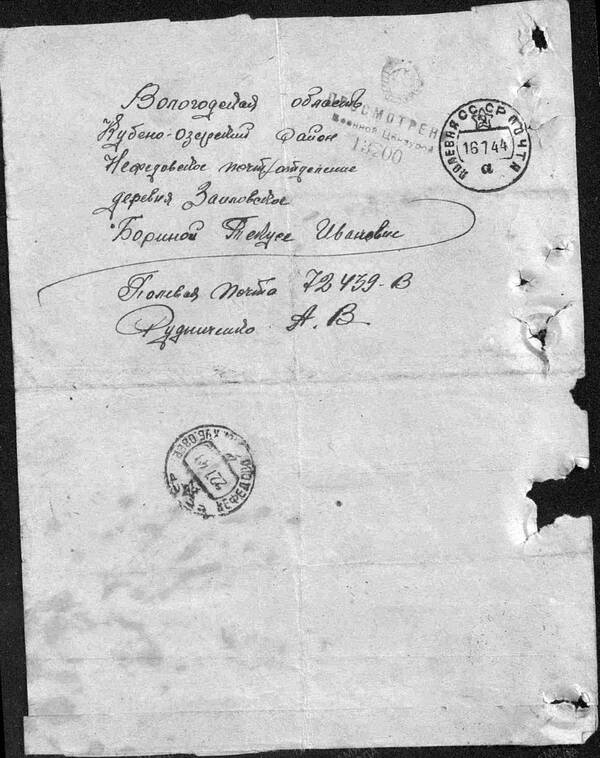 Вологодская область
Кубено-Озерский район
Нефедовское почт/отделение
деревня Заиловское
Бориной Текусе Ивановне
Полевая почта 72439-В
Рудниченко А. В
ПРОСМОТРЕНО
Военной Цензурой
13200
ПОЛЕВАЯ ПОЧТА
СССР
16.7.44
а